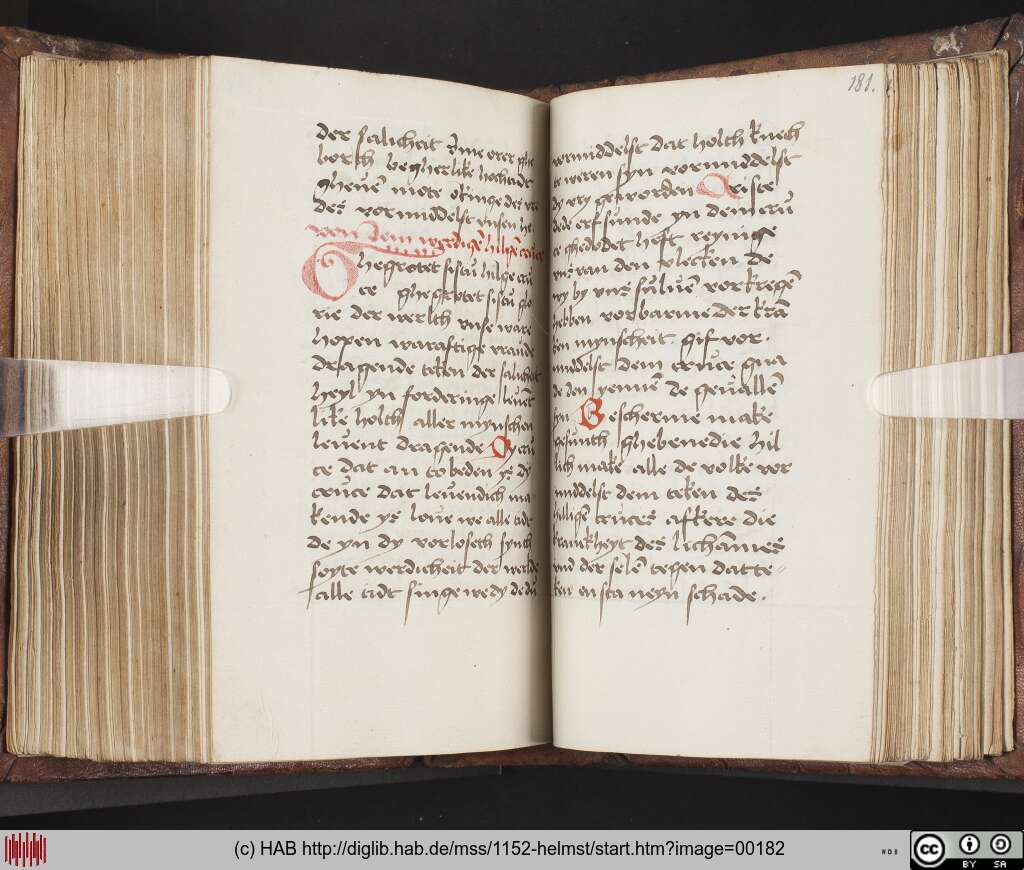 der salicheit
borch begherlike hochtidt
gheuen mote
des vormiddelst vnsen he
van dem werdigen hilgen cruce
Ghegrotet sistu hilge cru
ce ghegrotet sistu glo
rie der werlth vnse ware
hopen waraftige vraude
dragende teken der salicheit
heyl yn forderinge leuent
like holth aller mynschen
leuent dragende O cru
ce dat an to beden ys dy
cruce dat leuendich ma
kende ys loue we alle tidt
de yn dy vorloseth synth
soyte werdicheit der werlde
alle tidt singe we dy de du
181.
vormiddelst dat holth knech
te weren syn vormiddelst
dy vry geworden Criste
de de erfsunde yn dem cru
ce ghedodet heft reynige
vns van den vlecken de
wy by vns suluen vorkregen
hebben vorbarme der kran
ken mynscheit gif vor
middelst dem cruce gna
de den yennen de geuallen
syn Bescherme make
gesunth ghebenedie hil
lich make alle de volke vor
middelst dem teken des
hilligen cruces afkere die
kranckheyt des lichammes
vnd der selen tegen dat te
ken en sta neyn schade.
(c) HAB http://diglib.hab.de/mss/1152-helmst/start.htm?image=00182
WDB
cc BY SA